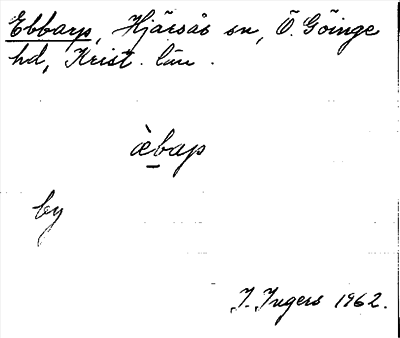 Ebbarp, Hjärsås sn, Ö. Göinge
hd, Krist. län.
æ̀b̲ap
by
I. Ingers 1962.